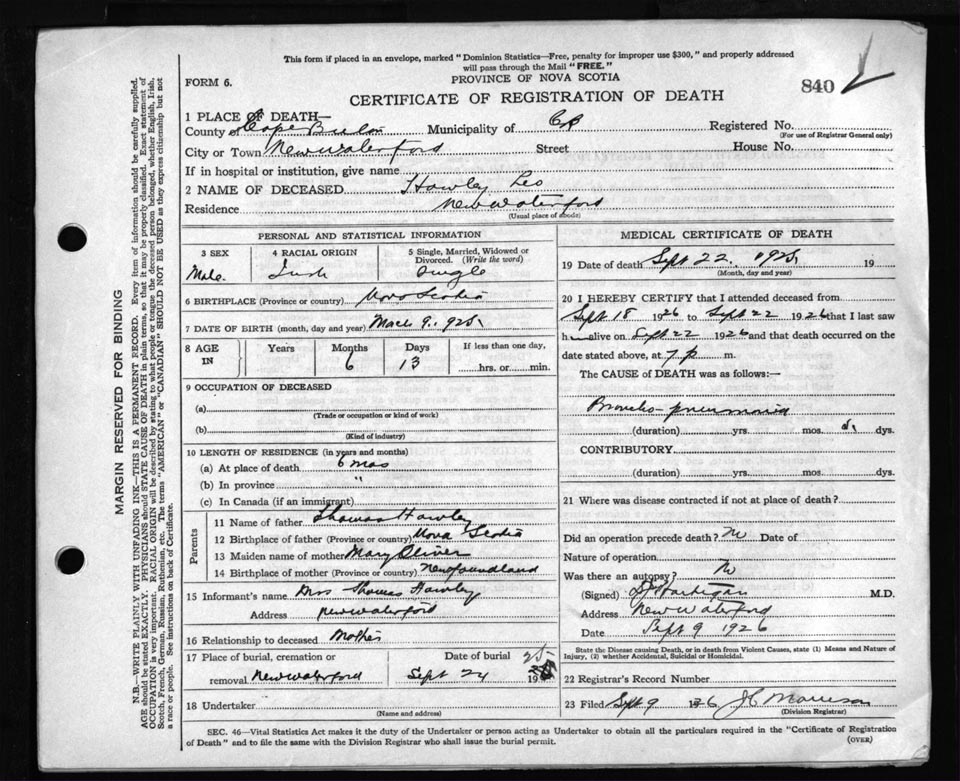 This form if placed in an envelope, marked "Dominion Statistics—Free, penalty for improper use $300," and properly addressed
will pass through the Mail "FREE."
FORM 6.
PROVINCE OF NOVA SCOTIA
840
CERTIFICATE OF REGISTRATION OF DEATH
1 PLACE OF DEATH—
County of Cape Breton Municipality of CB Registered No.
(For use of Registrar General only)
City or Town New Waterford Street House No.
If in hospital or institution, give name
2 NAME OF DECEASED Hawley Leo
Residence New Waterford
(Usual place of abode)
PERSONAL AND STATISTICAL INFORMATION
3 SEX Male 4 RACIAL ORIGIN Irish 5 Single, Married, Widowed or Divorced. (Write the word) Single
6 BIRTHPLACE (Province or country) Nova Scotia
7 DATE OF BIRTH (month, day and year) March 9. 1925.
8 AGE IN Years Months 6 Days 13 If less than one day, hrs. or min.
9 OCCUPATION OF DECEASED
(a)
(Trade or occupation or kind of work)
(b)
(Kind of industry)
10 LENGTH OF RESIDENCE (in years and months)
(a) At place of death 6 mos
(b) In province "
(c) In Canada (if an immigrant)
Parents
11 Name of father Thomas Hawley
12 Birthplace of father (Province or country) Nova Scotia
13 Maiden name of mother Mary Oliver
14 Birthplace of mother (Province or country) Newfoundland
15 Informant's name Mrs Thomas Hawley
Address New Waterford
16 Relationship to deceased Mother
17 Place of burial, cremation or Date of burial 25
removal New Waterford Sept 24 19
18 Undertaker
(Name and address)
MEDICAL CERTIFICATE OF DEATH
19 Date of death Sept 22. 1925. 19
(Month, day and year)
20 I HEREBY CERTIFY that I attended deceased from
Sept 18 1926 to Sept 22 1926 that I last saw
h alive on Sept 22 1926 and that death occurred on the
date stated above, at 7 p m.
The CAUSE of DEATH was as follows:—
Broncho-pneumonia
(duration) yrs. mos. dys.
CONTRIBUTORY
(duration) yrs. mos. dys.
21 Where was disease contracted if not at place of death?
Did an operation precede death? No Date of
Nature of operation
Was there an autopsy? No
(Signed) Hartigan M.D.
Address New Waterford
Date Sept 9 1926
State the Disease causing Death, or in death from Violent Causes, state (1) Means and Nature of
Injury, (2) whether Accidental, Suicidal or Homicidal.
22 Registrar's Record Number
23 Filed Sept 9 26
(Division Registrar)
SEC. 46—Vital Statistics Act makes it the duty of the Undertaker or person acting as Undertaker to obtain all the particulars required in the "Certificate of Registration
of Death" and to file the same with the Division Registrar who shall issue the burial permit.
(OVER)
MARGIN RESERVED FOR BINDING
N.B.—WRITE PLAINLY WITH UNFADING INK—THIS IS A PERMANENT RECORD. Every item of information should be carefully supplied.
AGE should be stated EXACTLY. PHYSICIANS should STATE CAUSE OF DEATH in plain terms, so that it may be properly classified. Exact statement of
OCCUPATION is very important. RACIAL ORIGIN will be described by stating to what people or tongue the deceased person belonged, whether English, Irish,
Scotch, French, German, Russian, Ruthenian, etc. The terms "AMERICAN" or "CANADIAN" SHOULD NOT BE USED as they express citizenship but not
a race or people. See instructions on back of Certificate.